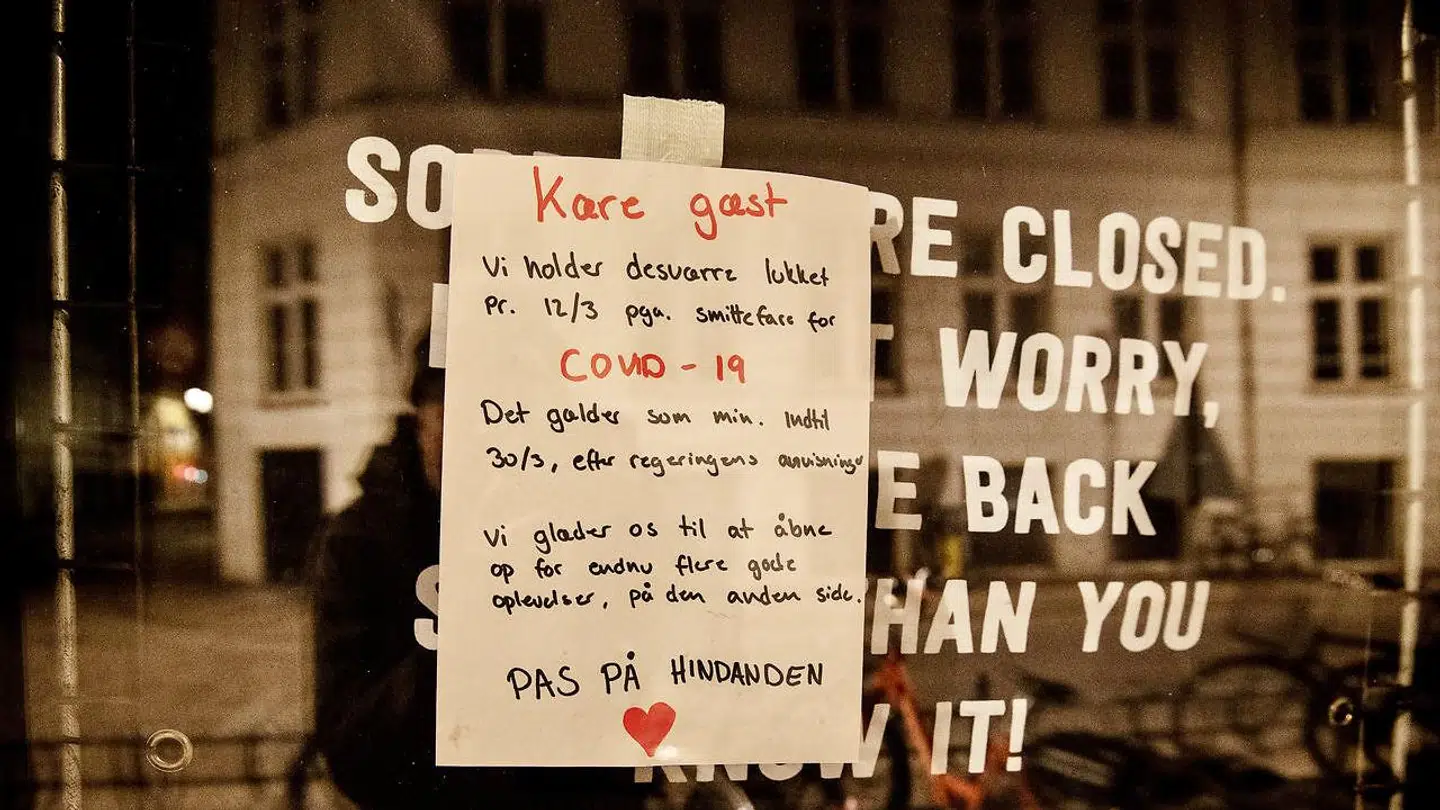 Kære gæst
Vi holder desværre lukket
pr. 12/3 pga. smittefare for
COVID - 19
Det gælder som min. indtil
30/3, efter regeringens anvisninger
Vi glæder os til at åbne
op for endnu flere gode
oplevelser, på den anden side.
PAS PÅ HINDANDEN
SO RE CLOSED.
WORRY,
E BACK
S HAN YOU
KNOW IT!